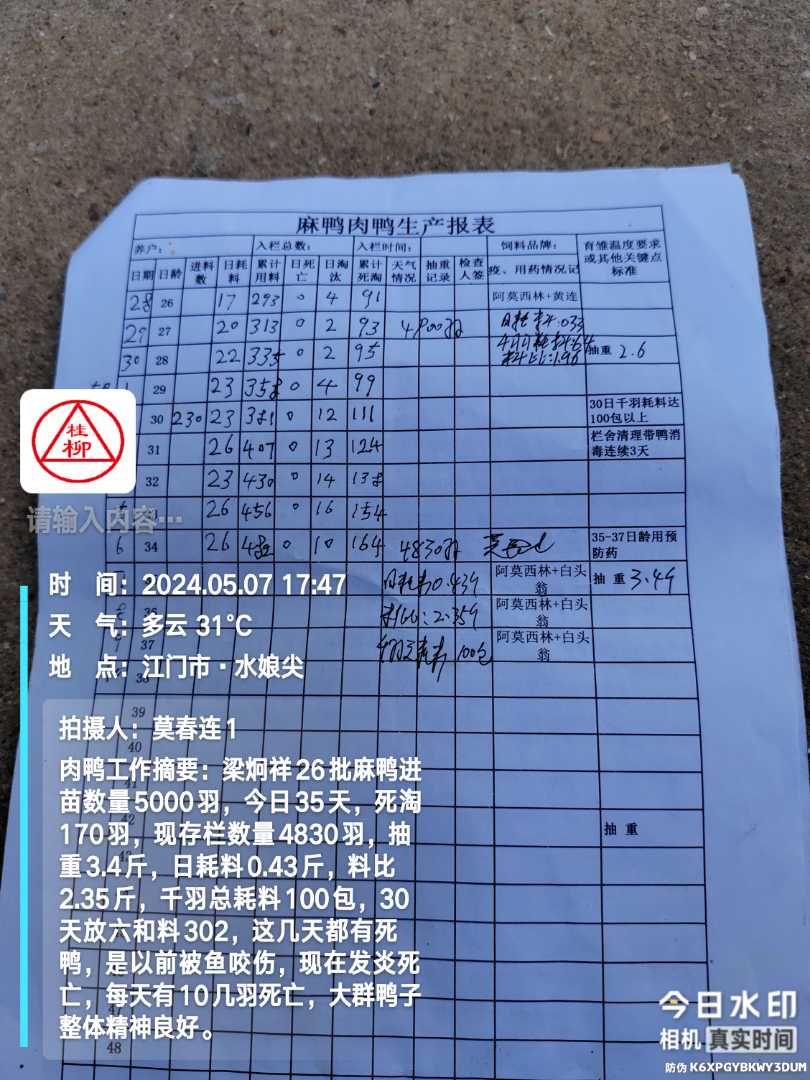 麻鸭肉鸭生产报表
养户: 入栏总数: 入栏时间: 饲料品牌: 育雏温度要求或其他关键点标准
日期 日龄 进料数 日耗料 累计用料 日死亡 日淘汰 累计死淘 天气情况 抽重记录 检查人签 疫、用药情况记
28 26 17 293 0 4 91 阿莫西林+黄连
29 27 20 313 0 2 93 4900羽
30 28 22 335 0 2 95 抽重 2.6
1 29 23 358 0 4 99
30 230 23 381 0 12 111 30日千羽耗料达100包以上
31 26 407 0 13 124 栏舍清理带鸭消毒连续3天
32 23 430 0 14 138
26 456 0 16 154
6 34 26 482 0 10 164 4830羽 35-37日龄用预防药
日耗料0.439 阿莫西林+白头翁 抽重 3.49
料比:2.359 阿莫西林+白头翁
37 100包 阿莫西林+白头翁
38
39
40
抽重
48
桂柳
请输入内容…
时 间:2024.05.07 17:47
天 气:多云 31°C
地 点:江门市·水娘尖
拍摄人:莫春连1
肉鸭工作摘要:梁炯祥26批麻鸭进
苗数量5000羽,今日35天,死淘
170羽,现存栏数量4830羽,抽
重3.4斤,日耗料0.43斤,料比
2.35斤,千羽总耗料100包,30
天放六和料302,这几天都有死
鸭,是以前被鱼咬伤,现在发炎死
亡,每天有10几羽死亡,大群鸭子
整体精神良好。
今日水印
相机 真实时间
防伪 K6XPGYBKWY3DUM